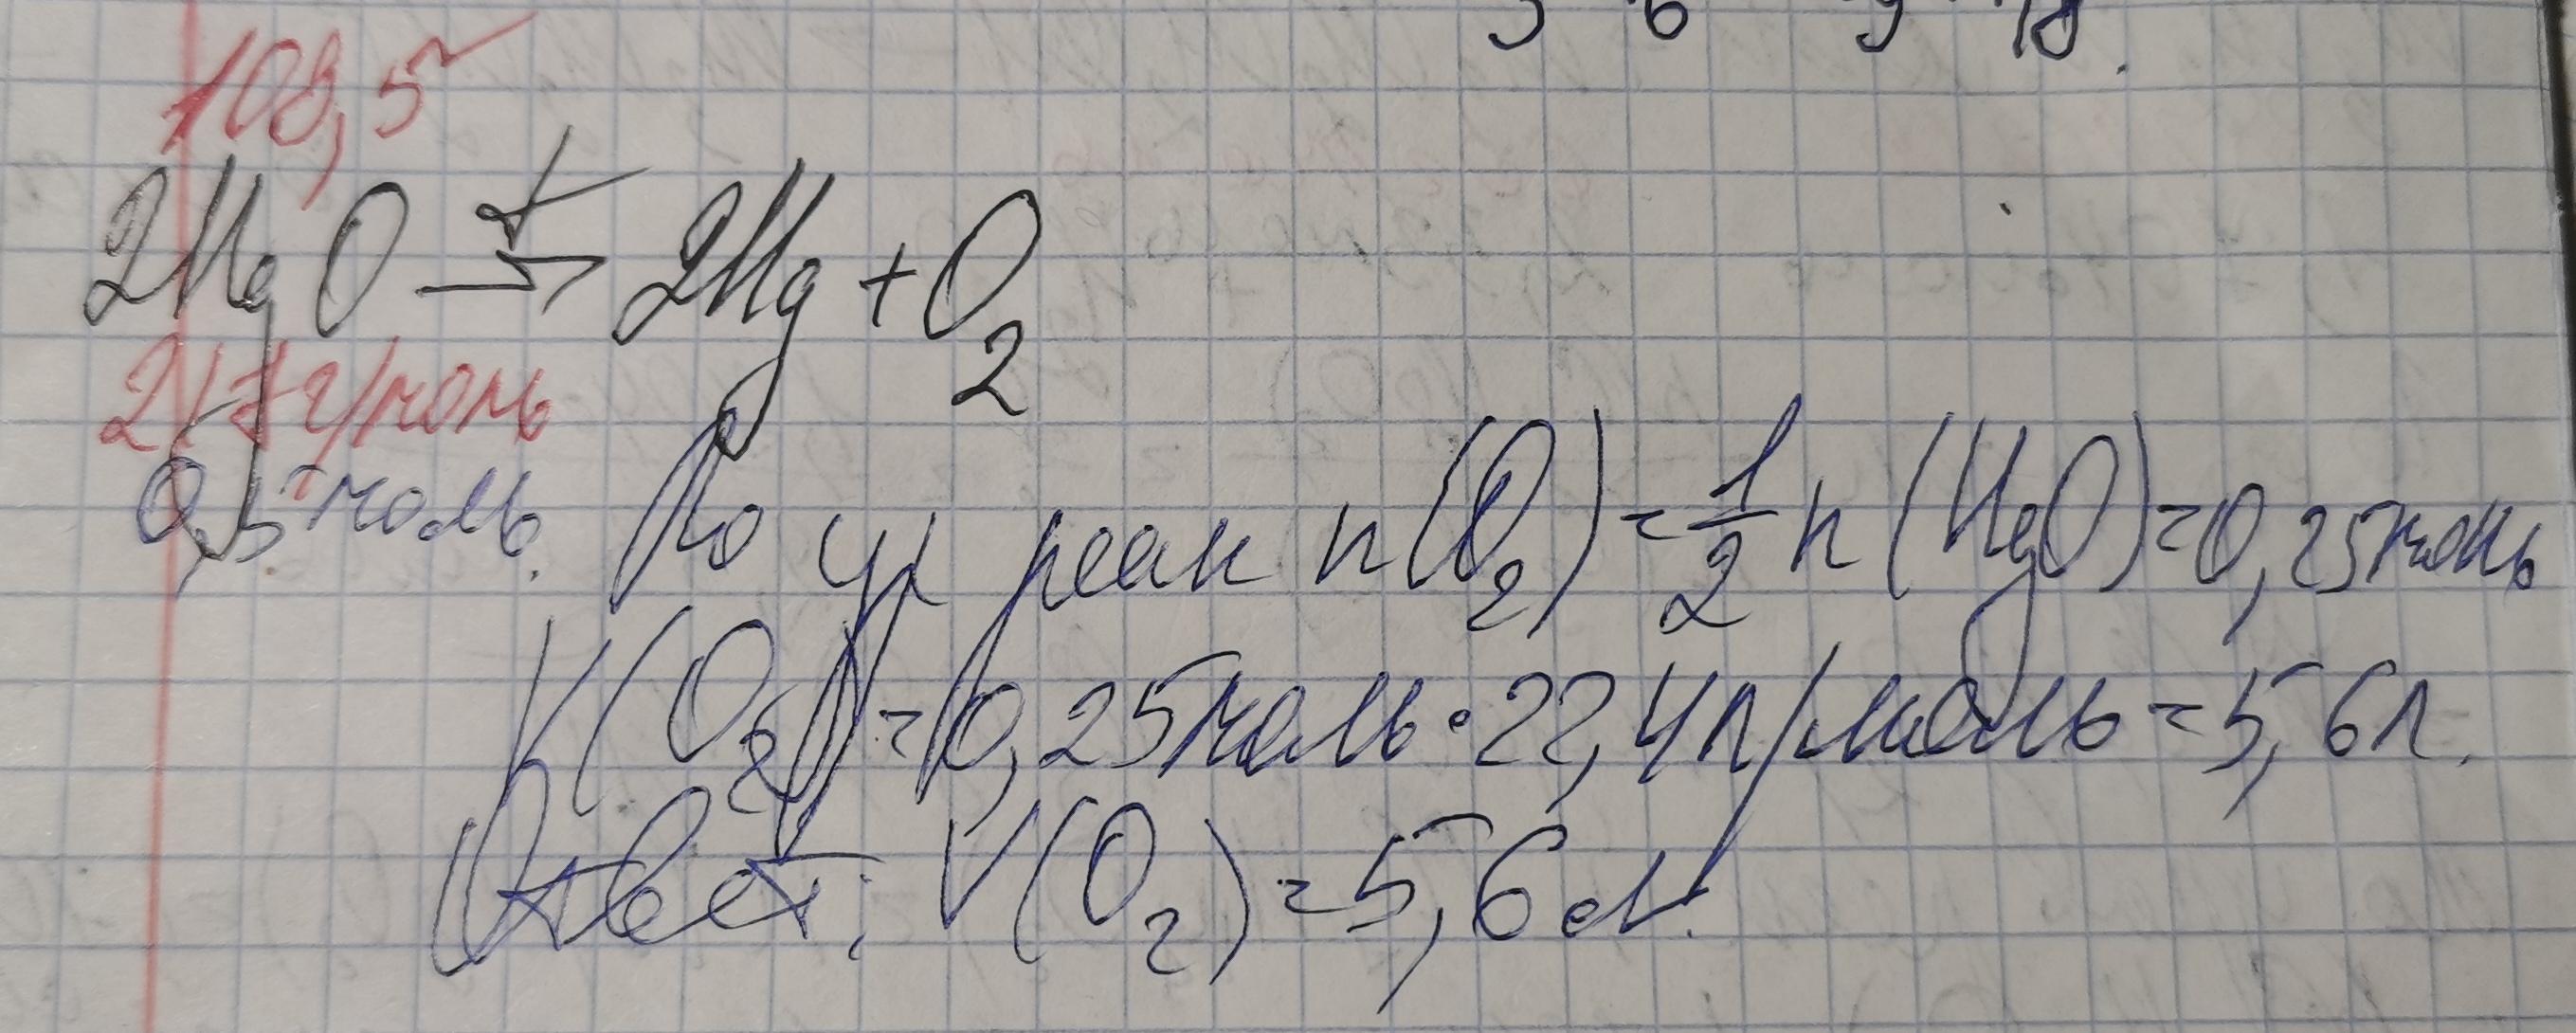 108,5
2HgO t→ 2Hg + O2
217 г/моль
0,5 моль. По ур реак n(O2) = 1/2 n(HgO) = 0,25 моль
V(O2) = 0,25 моль · 22,4 л/моль = 5,6 л.
Ответ: V(O2) = 5,6 л.